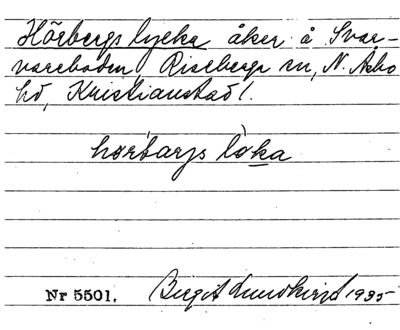 Hörbergs lycka åker å Svar-
vareboden Riseberga sn, N. Åsbo
hd, Kristianstad l.
hørbarjs lòka
Nr 5501. Birgit Lundkvist 1935